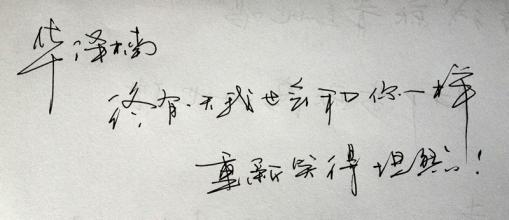 华泽楠
终有一天我也会和你一样
重新笑得坦然!